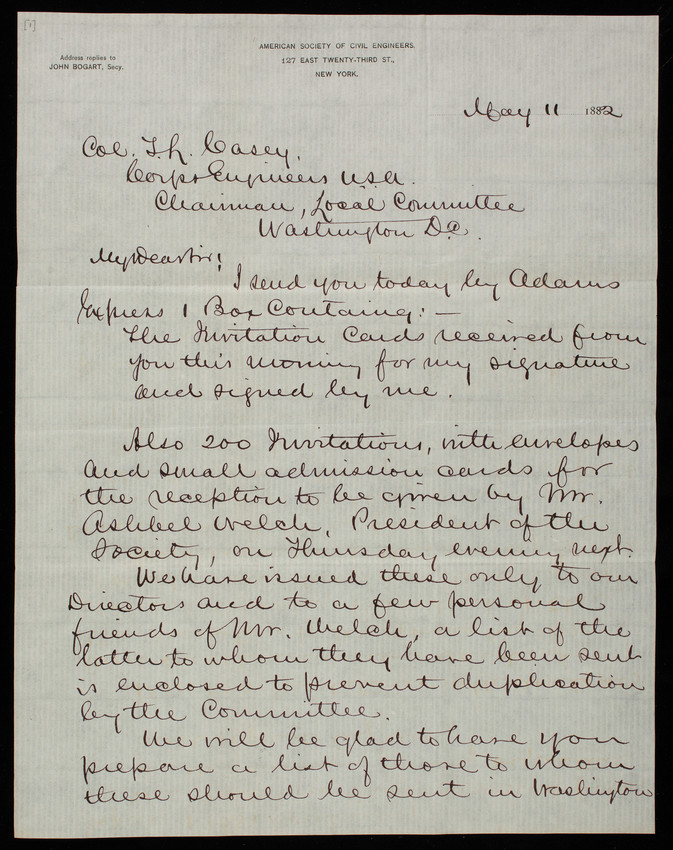 [1]
Address replies to
JOHN BOGART, Secy.
AMERICAN SOCIETY OF CIVIL ENGINEERS.
127 EAST TWENTY-THIRD ST.,
NEW YORK.
May 11 1882
Col. T. L. Casey.
Corps Engineers U.S.A.
Chairman, Local Committee
Washington D.C.
My Dear Sir!
I send you today by Adams
Express 1 Box Containg: —
The Invitation Cards received from
you this morning for my signature
and signed by me.
Also 200 Invitations, with envelopes
and small admission cards for
the reception to be given by Mr.
Ashbel Welch, President of the
Society, on Thursday evening next.
We have issued these only to our
Directors and to a few personal
friends of Mr. Welch, a list of the
latter to whom they have been sent
is enclosed to prevent duplication
by the Committee.
We will be glad to have you
prepare a list of those to whom
these should be sent in Washington